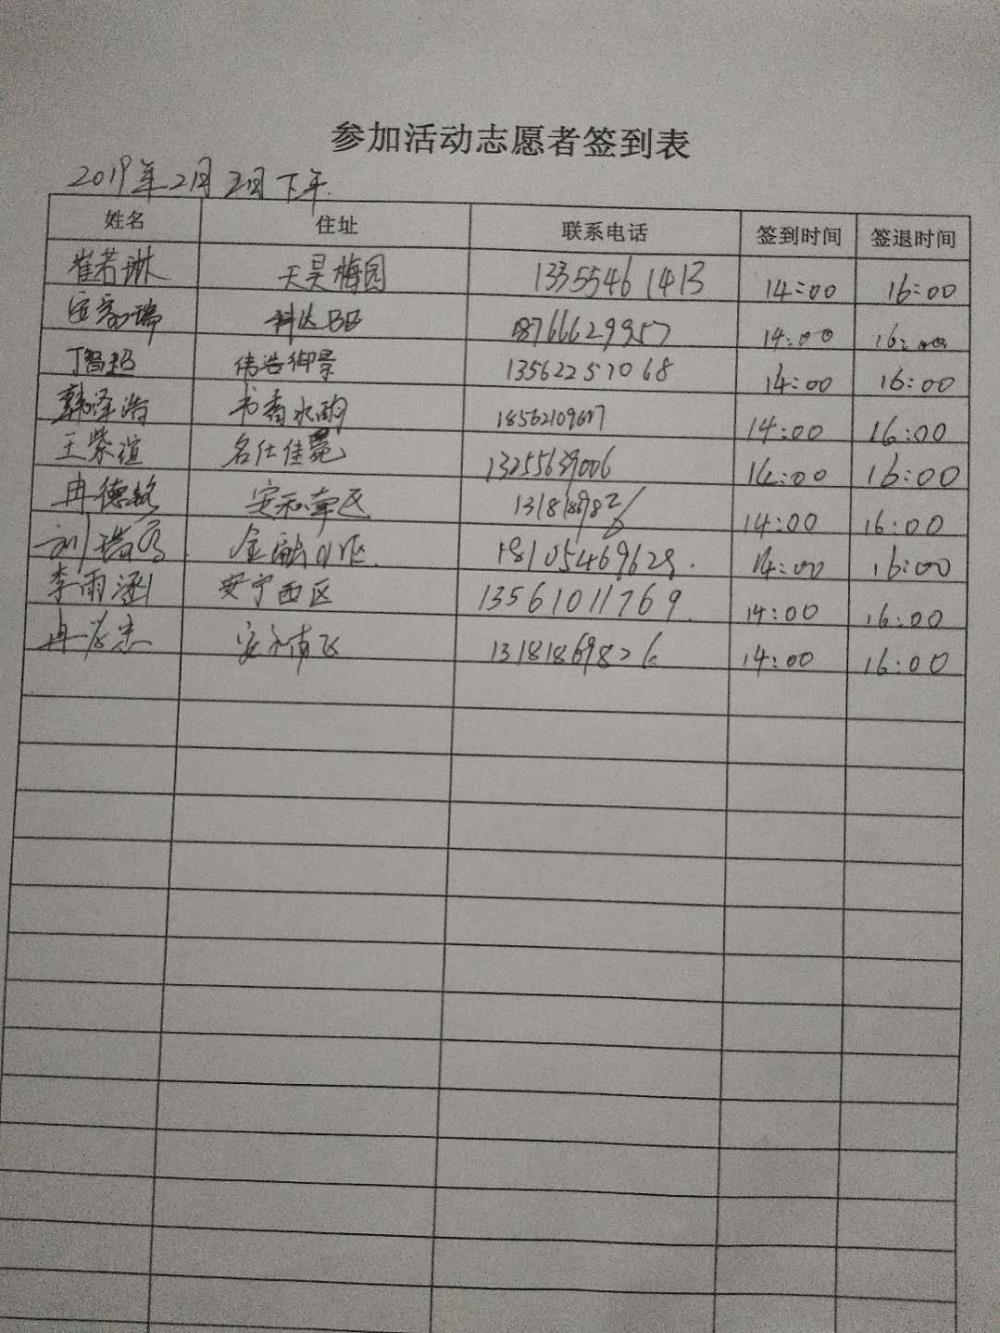 参加活动志愿者签到表
2019年2月2日下午.
姓名 住址 联系电话 签到时间 签退时间
崔若琳 天昊梅园 13355461413 14:00 16:00
安家瑞 科达BB 18766629957 14:00 16:00
丁智超 伟浩御景 13562257068 14:00 16:00
韩泽浩 书香水韵 14:00 16:00
王紫谊 名仕佳苑 13255639006 14:00 16:00
冉德铭 安和南区 14:00 16:00
刘瑞 金融小区. 18105469628. 14:00 16:00
李雨涵 安宁西区 13561011769. 14:00 16:00
冉 杰 安和南区 13181869826 14:00 16:00